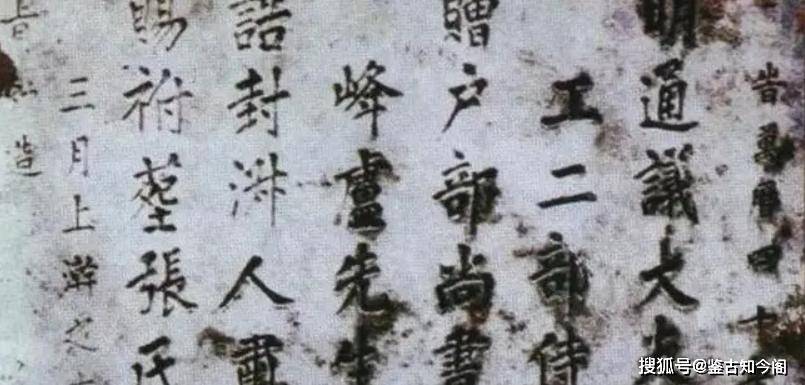 旹萬曆四十
明通議大夫
工二部侍
贈户部尚書
峰盧先生
誥封淑人肅
賜祔塟張氏
三月上澣之
造
搜狐号@鉴古知今阁